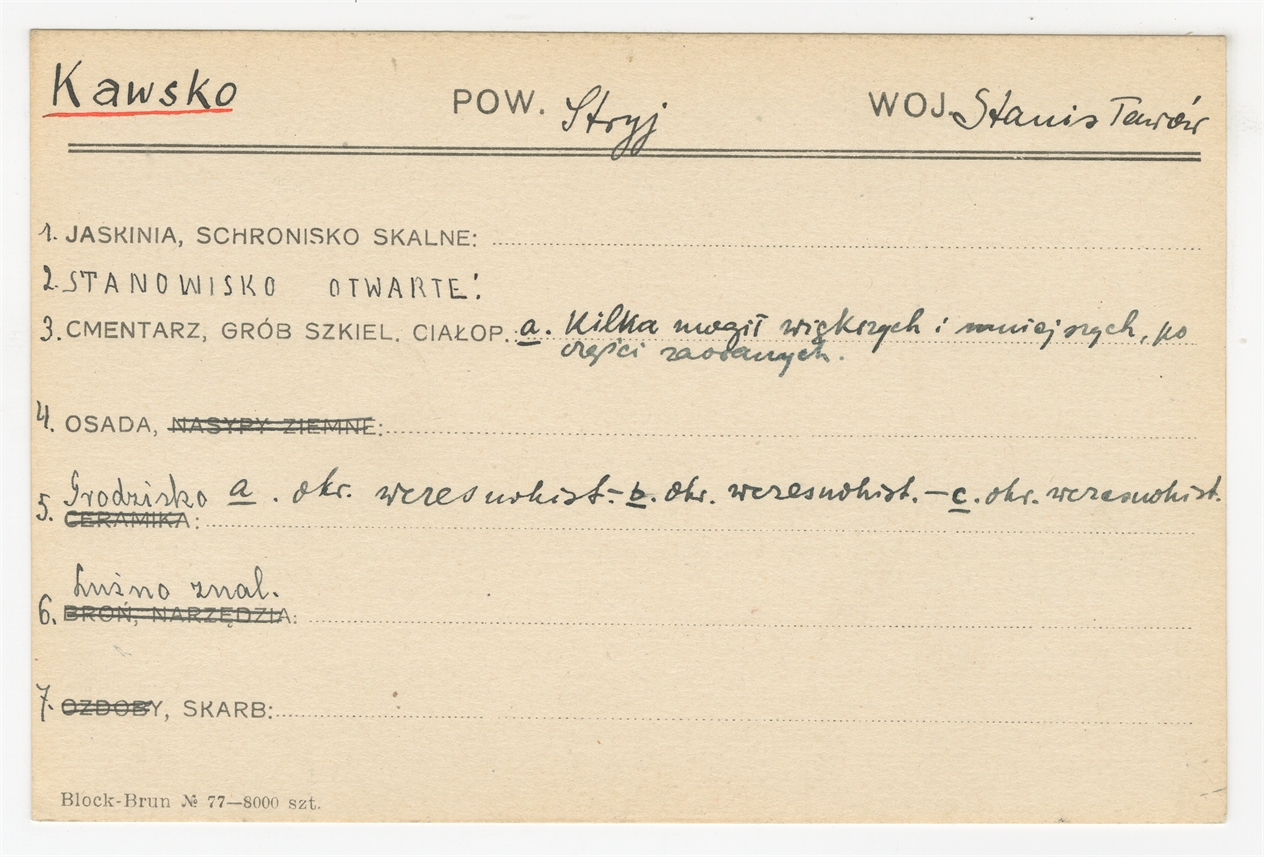 Kawsko POW. Stryj WOJ. Stanisławów
1. JASKINIA, SCHRONISKO SKALNE:
2. STANOWISKO OTWARTE:
3. CMENTARZ, GRÓB SZKIEL. CIAŁOP.: a. Kilka mogił większych i mniejszych, po
części zaoranych.
4. OSADA, NASYPY ZIEMNE:
Grodzisko a. okr. wczesnohist. – b. okr. wczesnohist. – c. okr. wczesnohist.
5. CERAMIKA:
Luźno znal.
6. BROŃ, NARZĘDZIA:
7. OZDOBY, SKARB:
Block-Brun № 77—8000 szt.